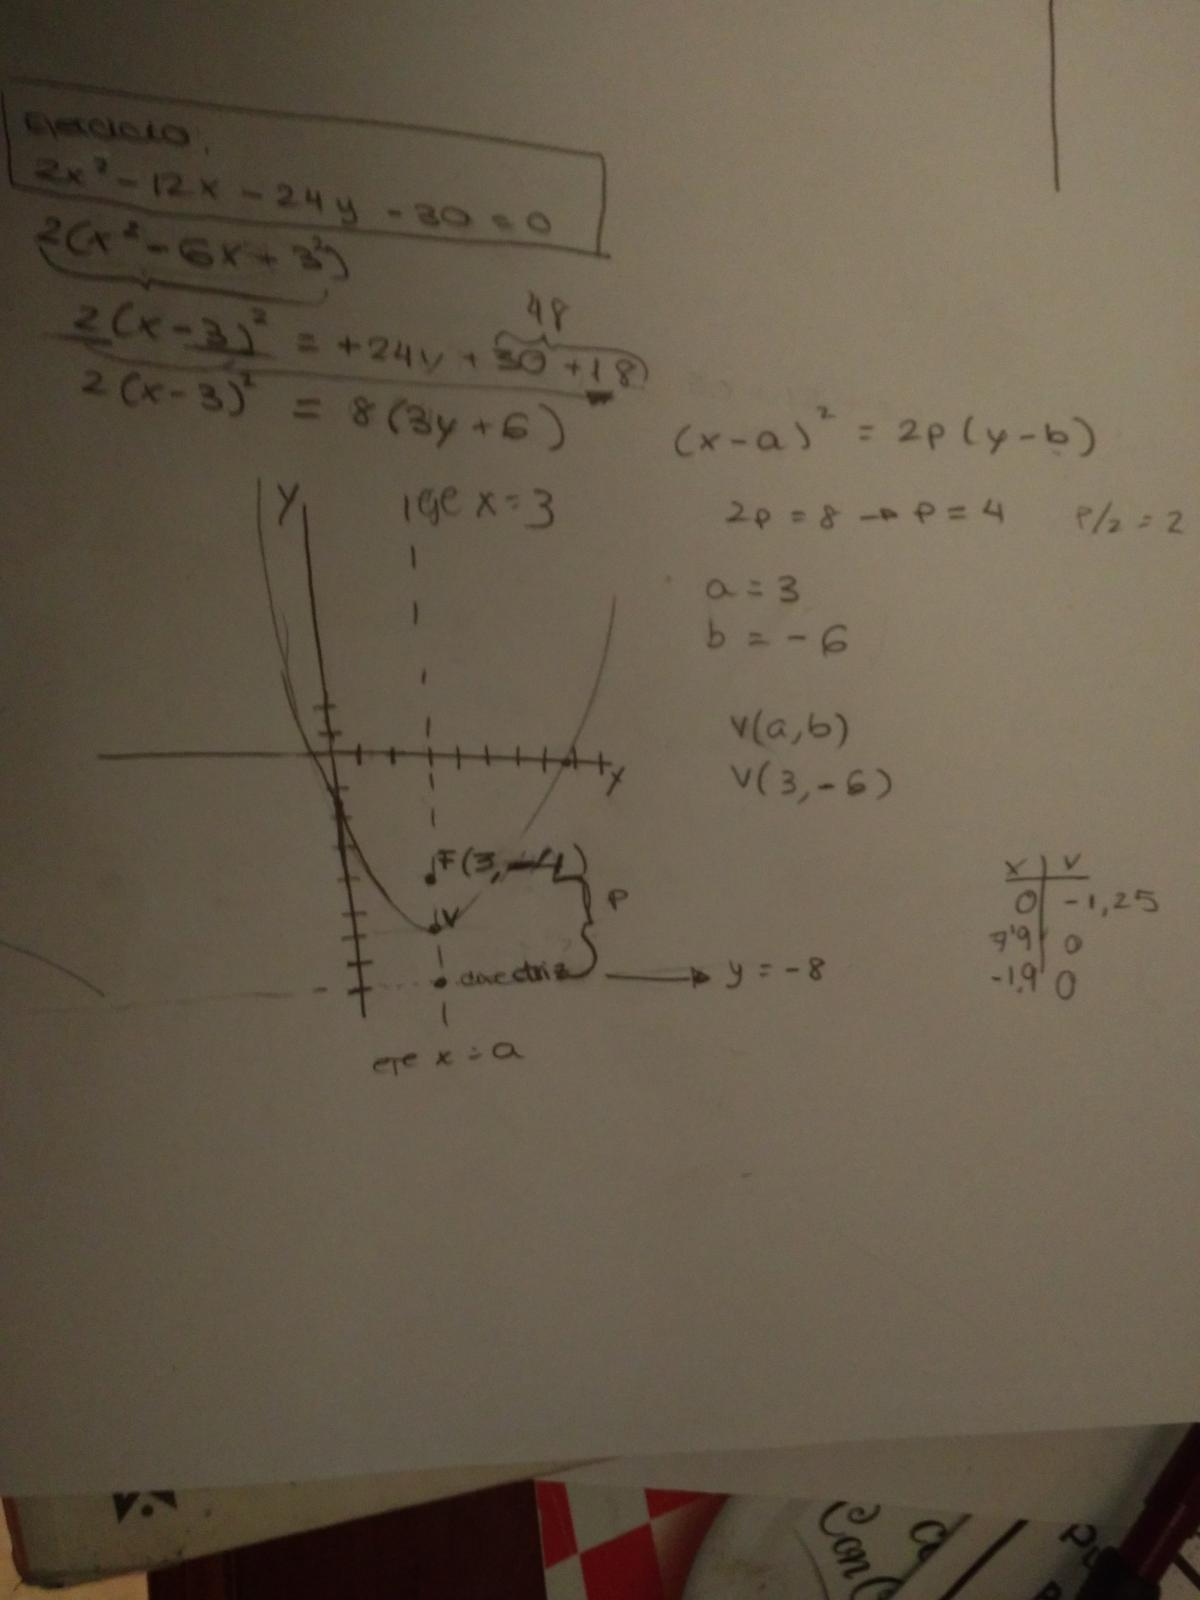 Ejercicio.
2x² - 12x - 24y - 30 = 0
2(x² - 6x + 3²)
48
2(x - 3)² = +24y + 30 + 18
2(x - 3)² = 8(3y + 6)
(x - a)² = 2p(y - b)
Y
eje x = 3
2p = 8 → p = 4
P/2 = 2
a = 3
b = -6
V(a,b)
V(3,-6)
F(3,-4)
P
V
directriz
y = -8
eje x = a
0 -1,25
7,9 0
-1,9 0
Con